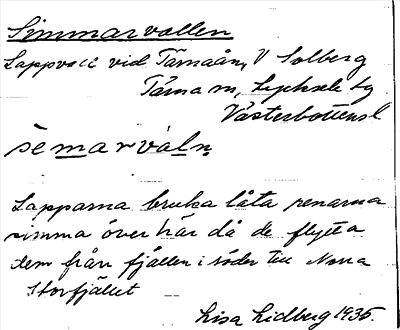 Simmarvallen
Lappvall vid Tärnaån, V Solberg
Tärna sn, Lycksele lg
Västerbottens l
sèmarvàln
Lapparna bruka låta renarna
simma över här då de flytta
dem från fjällen i söder till Norra
Storfjället
Lisa Lidberg 1935